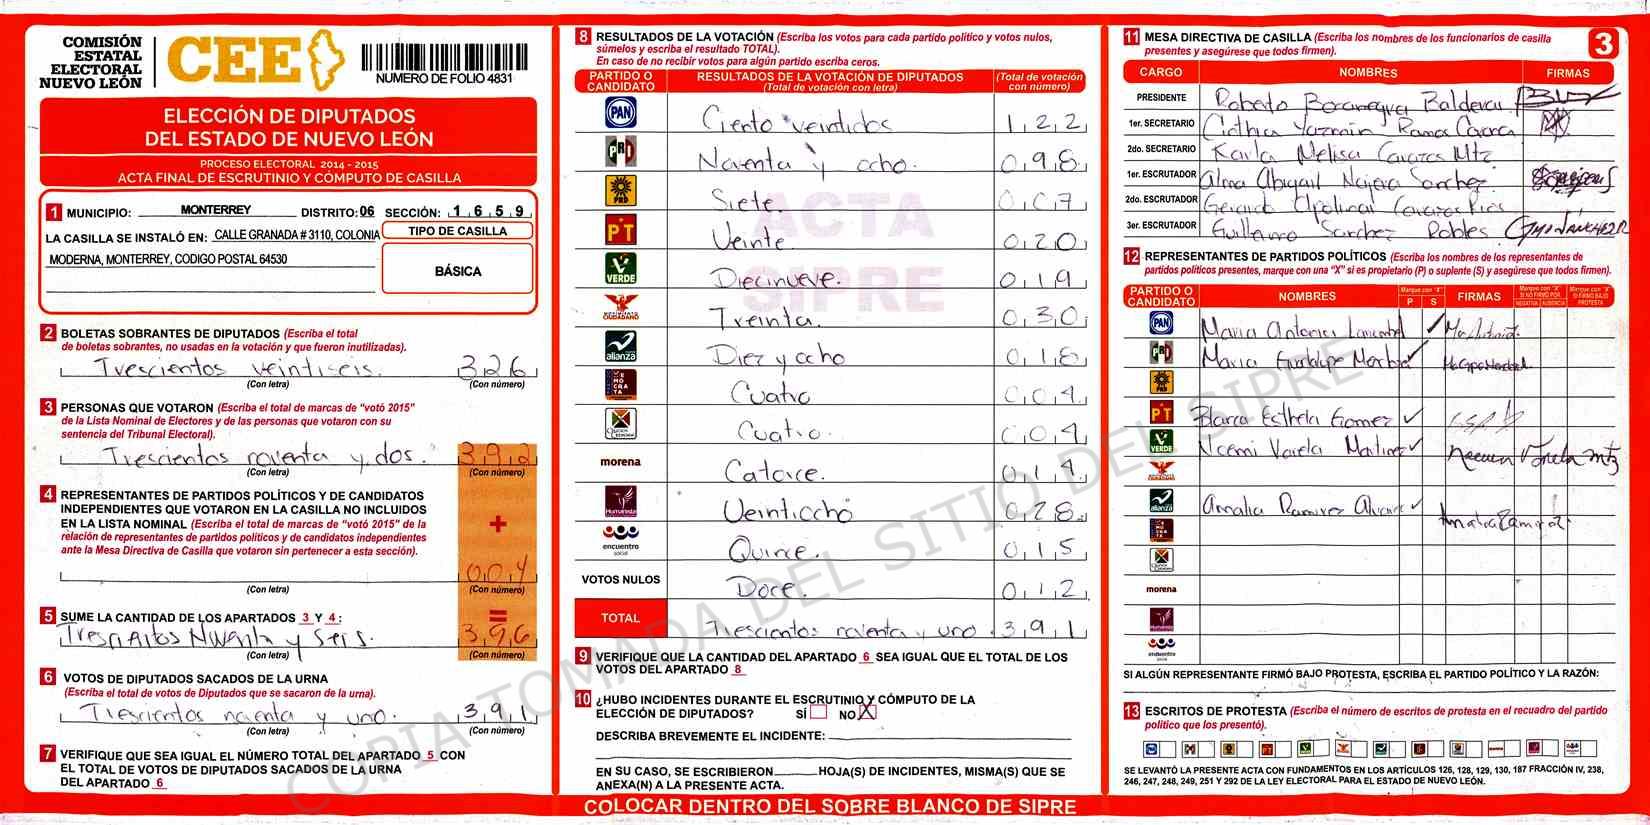 COMISIÓN
ESTATAL
ELECTORAL
NUEVO LEÓN
CEE
NUMERO DE FOLIO 4831
ELECCIÓN DE DIPUTADOS
DEL ESTADO DE NUEVO LEÓN
PROCESO ELECTORAL 2014 - 2015
ACTA FINAL DE ESCRUTINIO Y CÓMPUTO DE CASILLA
1 MUNICIPIO: MONTERREY DISTRITO: 06 SECCIÓN: 1 6 5 9
LA CASILLA SE INSTALÓ EN: CALLE GRANADA # 3110, COLONIA
MODERNA, MONTERREY, CODIGO POSTAL 64530
TIPO DE CASILLA
BÁSICA
2 BOLETAS SOBRANTES DE DIPUTADOS (Escriba el total
de boletas sobrantes, no usadas en la votación y que fueron inutilizadas).
Trescientos veintiseis. 3 2 6
(Con letra) (Con número)
3 PERSONAS QUE VOTARON (Escriba el total de marcas de "votó 2015"
de la Lista Nominal de Electores y de las personas que votaron con su
sentencia del Tribunal Electoral).
Trescientos noventa y dos. 3 9 2
(Con letra) (Con número)
4 REPRESENTANTES DE PARTIDOS POLÍTICOS Y DE CANDIDATOS
INDEPENDIENTES QUE VOTARON EN LA CASILLA NO INCLUIDOS
EN LA LISTA NOMINAL (Escriba el total de marcas de "votó 2015" de la
relación de representantes de partidos políticos y de candidatos independientes
ante la Mesa Directiva de Casilla que votaron sin pertenecer a esta sección).
+
0 0 4
(Con letra) (Con número)
=
5 SUME LA CANTIDAD DE LOS APARTADOS 3 Y 4:
Trescientos Noventa y Seis. 3 9 6
(Con letra) (Con número)
6 VOTOS DE DIPUTADOS SACADOS DE LA URNA
(Escriba el total de votos de Diputados que se sacaron de la urna).
Trescientos noventa y uno. 3 9 1
(Con letra) (Con número)
7 VERIFIQUE QUE SEA IGUAL EL NÚMERO TOTAL DEL APARTADO 5 CON
EL TOTAL DE VOTOS DE DIPUTADOS SACADOS DE LA URNA
DEL APARTADO 6
8 RESULTADOS DE LA VOTACIÓN (Escriba los votos para cada partido político y votos nulos,
súmelos y escriba el resultado TOTAL).
En caso de no recibir votos para algún partido escriba ceros.
PARTIDO O CANDIDATO RESULTADOS DE LA VOTACIÓN DE DIPUTADOS (Total de votación con letra) (Total de votación con número)
PAN Ciento veintidos 1 2 2
PRD Noventa y ocho. 0 9 8
PRD Siete. 0 0 7
PT Veinte. 0 2 0
VERDE Diecinueve. 0 1 9
CIUDADANO Treinta. 0 3 0
alianza Diez y ocho 0 1 8
Cuatro 0 0 4
Cuatro. 0 0 4
morena Catorce. 0 1 4
Humanista Veintiocho 0 2 8
encuentro social Quince. 0 1 5
VOTOS NULOS Doce. 0 1 2
TOTAL Trescientos noventa y uno 3 9 1
ACTA
SIPRE
9 VERIFIQUE QUE LA CANTIDAD DEL APARTADO 6 SEA IGUAL QUE EL TOTAL DE LOS
VOTOS DEL APARTADO 8
10 ¿HUBO INCIDENTES DURANTE EL ESCRUTINIO Y CÓMPUTO DE LA
ELECCIÓN DE DIPUTADOS? SÍ NO X
DESCRIBA BREVEMENTE EL INCIDENTE:
EN SU CASO, SE ESCRIBIERON HOJA(S) DE INCIDENTES, MISMA(S) QUE SE
ANEXA(N) A LA PRESENTE ACTA.
COLOCAR DENTRO DEL SOBRE BLANCO DE SIPRE
11 MESA DIRECTIVA DE CASILLA (Escriba los nombres de los funcionarios de casilla
presentes y asegúrese que todos firmen).
3
CARGO NOMBRES FIRMAS
PRESIDENTE Roberto Bocanegra Balderas
1er. SECRETARIO Cinthia Yazmin Ramos
2do. SECRETARIO Karla Melisa Cavazos Mtz
1er. ESCRUTADOR Alma Abigail Najera Sanchez
2do. ESCRUTADOR Gerardo Apolinar Cavazos Rios
3er. ESCRUTADOR Guillermo Sanchez Robles GMO SANCHEZ R
12 REPRESENTANTES DE PARTIDOS POLÍTICOS (Escriba los nombres de los representantes de
partidos políticos presentes, marque con una "X" si es propietario (P) o suplente (S) y asegúrese que todos firmen).
PARTIDO O CANDIDATO NOMBRES Marque con "X" P S FIRMAS Marque con "X" SI NO FIRMÓ POR: NEGATIVA AUSENCIA Marque con "X" SI FIRMÓ BAJO PROTESTA
PAN Maria Antonia
PRD Maria Guadalupe
PRD
PT Blanca Esthela Gomez
VERDE Noemi Varela Martinez Noemi Varela mtz
alianza Amalia Ramirez Alvarez Amalia Ramirez
morena
encuentro social
SI ALGÚN REPRESENTANTE FIRMÓ BAJO PROTESTA, ESCRIBA EL PARTIDO POLÍTICO Y LA RAZÓN:
13 ESCRITOS DE PROTESTA (Escriba el número de escritos de protesta en el recuadro del partido
político que los presentó).
SE LEVANTÓ LA PRESENTE ACTA CON FUNDAMENTOS EN LOS ARTÍCULOS 126, 128, 129, 130, 187 FRACCIÓN IV, 238,
246, 247, 248, 249, 251 Y 292 DE LA LEY ELECTORAL PARA EL ESTADO DE NUEVO LEÓN.
COPIA TOMADA DEL SITIO DEL SIPRE